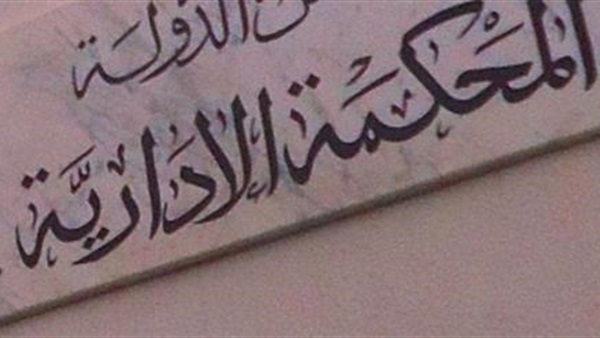 الدولة
المحكمة الادارية